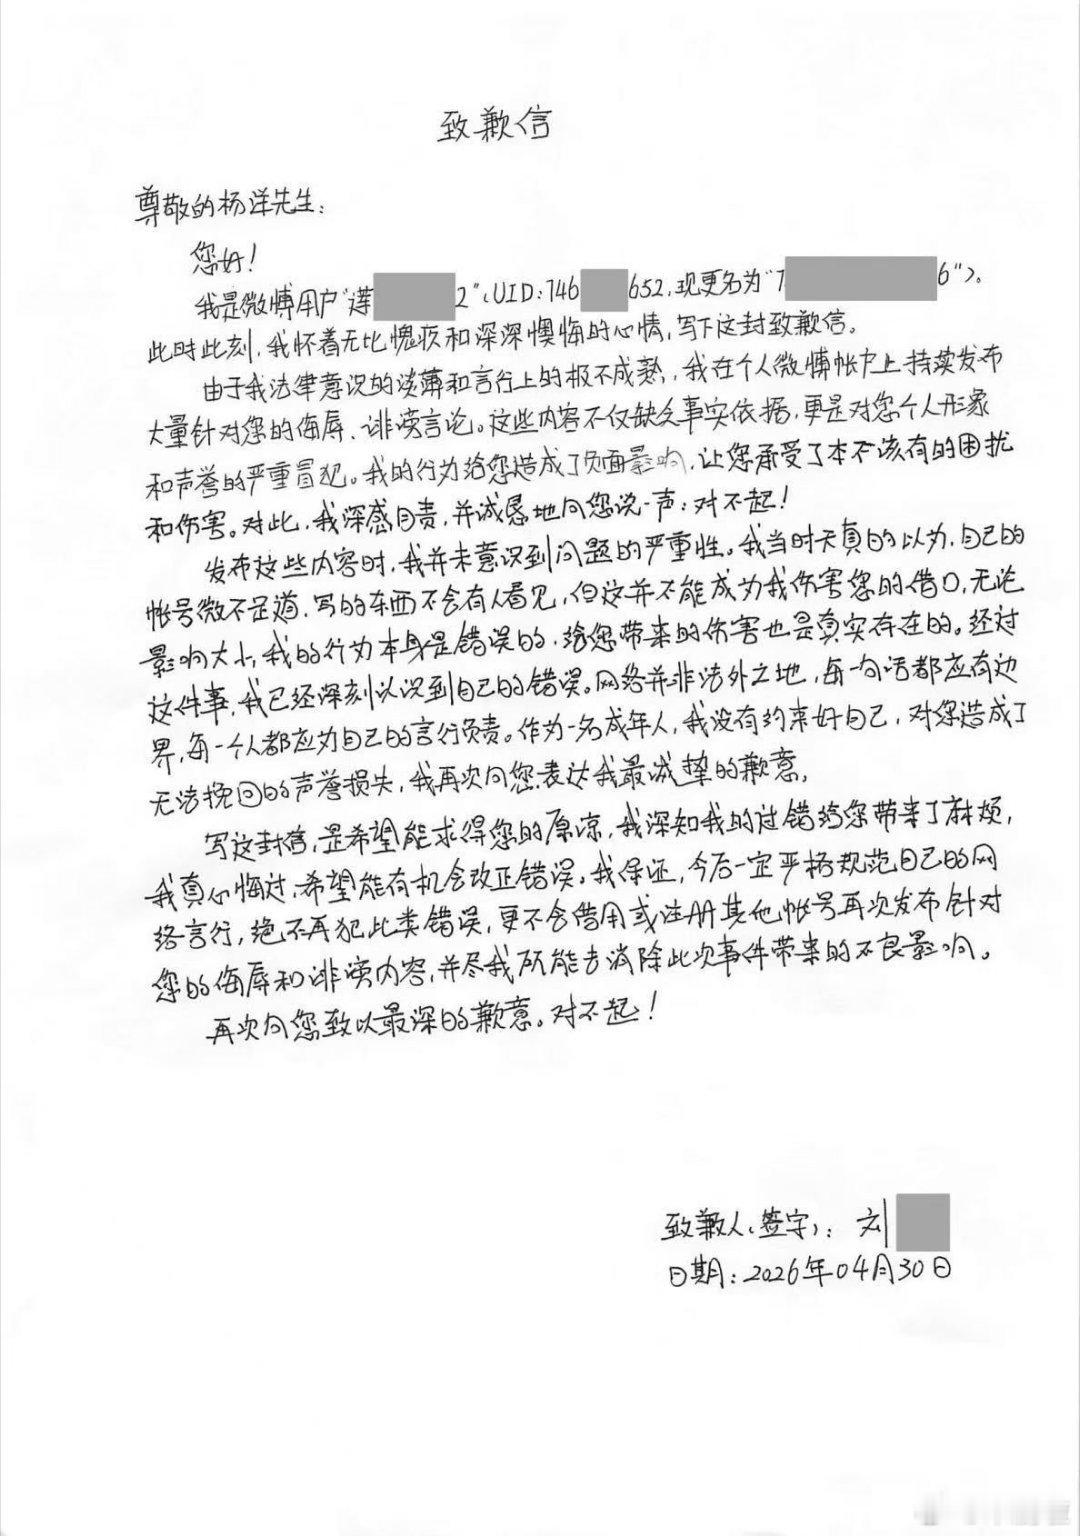 致歉信
尊敬的杨洋先生：
您好！
我是微博用户"谨 2"（UID:746 652，现更名为"7 6"）。
此时此刻，我怀着无比愧疚和深深懊悔的心情，写下这封致歉信。
由于我法律意识的淡薄和言行上的极不成熟，我在个人微博帐户上持续发布
大量针对您的侮辱、诽谤言论。这些内容不仅缺乏事实依据，更是对您个人形象
和声誉的严重冒犯。我的行为给您造成了负面影响，让您承受了本不该有的困扰
和伤害。对此，我深感自责，并诚恳地向您说一声：对不起！
发布这些内容时，我并未意识到问题的严重性。我当时天真的以为，自己的
帐号微不足道，写的东西不会有人看见，但这并不能成为我伤害您的借口，无论
影响大小，我的行为本身是错误的，给您带来的伤害也是真实存在的。经过
这件事，我已经深刻认识到自己的错误。网络并非法外之地，每一句话都应有边
界，每一个人都应为自己的言行负责。作为一名成年人，我没有约束好自己，对您造成了
无法挽回的声誉损失，我再次向您表达我最诚挚的歉意。
写这封信，是希望能求得您的原谅，我深知我的过错给您带来了麻烦，
我真心悔过，希望能有机会改正错误。我保证，今后一定严格规范自己的网
络言行，绝不再犯此类错误，更不会借用或注册其他帐号再次发布针对
您的侮辱和诽谤内容，并尽我所能去消除此次事件带来的不良影响。
再次向您致以最深的歉意。对不起！
致歉人（签字）：刘
日期：2026年04月30日